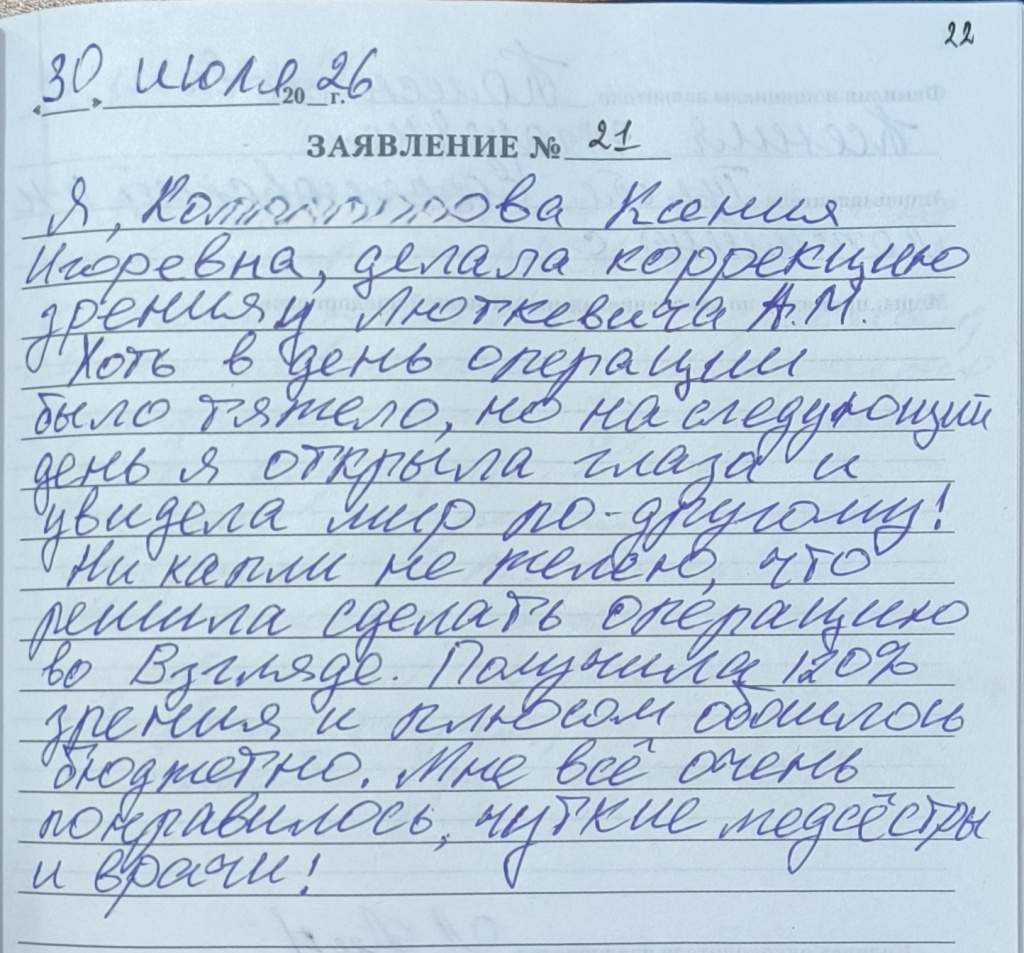 22
«30» июля 2026 г.
ЗАЯВЛЕНИЕ № 21
Я, Ксения
Игоревна, делала коррекцию
зрения у Люткевича А.М.
Хоть в день операции
было тяжело, но на следующий
день я открыла глаза и
увидела мир по-другому!
Ни капли не желею, что
решила сделать операцию
во Взгляде. Получила 120%
зрения и плюсом обошлось
бюджетно. Мне всё очень
понравилось, чуткие медсёстры
и врачи!